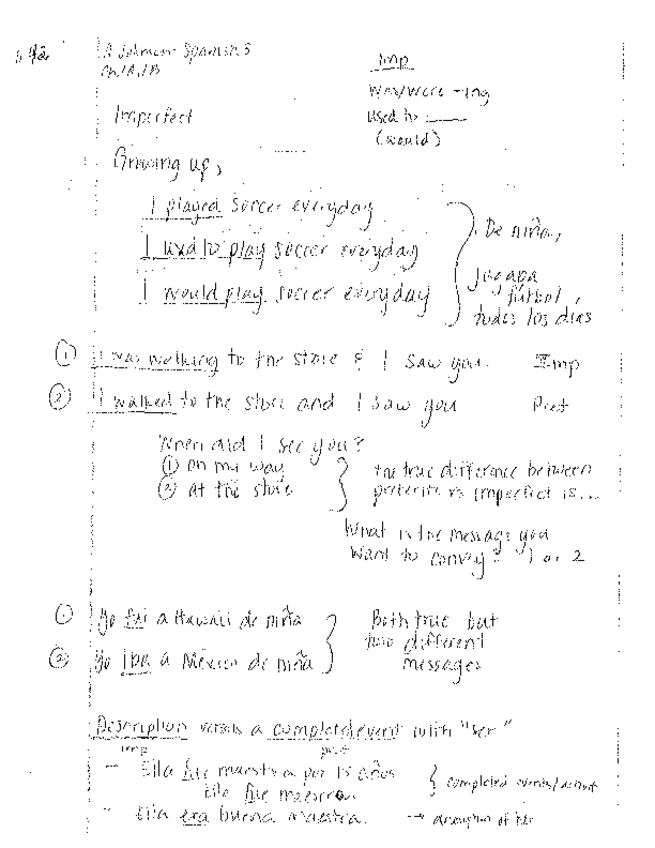 Johnson Spanish 3
Ch 1A, 1B
Imp
was/were -ing
used to ____
(would)
Imperfect
Growing up,
I played soccer everyday
I used to play soccer everyday
I would play soccer everyday
De niña,
jugaba
fútbol
todos los días
① I was walking to the store & I saw you. Imp
② I walked to the store and I saw you Pret
When did I see you?
① on my way
② at the store
the true difference between
preterite vs imperfect is...
What is the message you
want to convey? 1 or 2
① Yo fui a Hawaii de niña
② Yo iba a México de niña
Both true but
two different
messages
Description versus a completed event with "ser"
imp pret
- Ella fue maestra por 15 años
Ella fue maestra.
completed
- Ella era buena maestra. → description of her